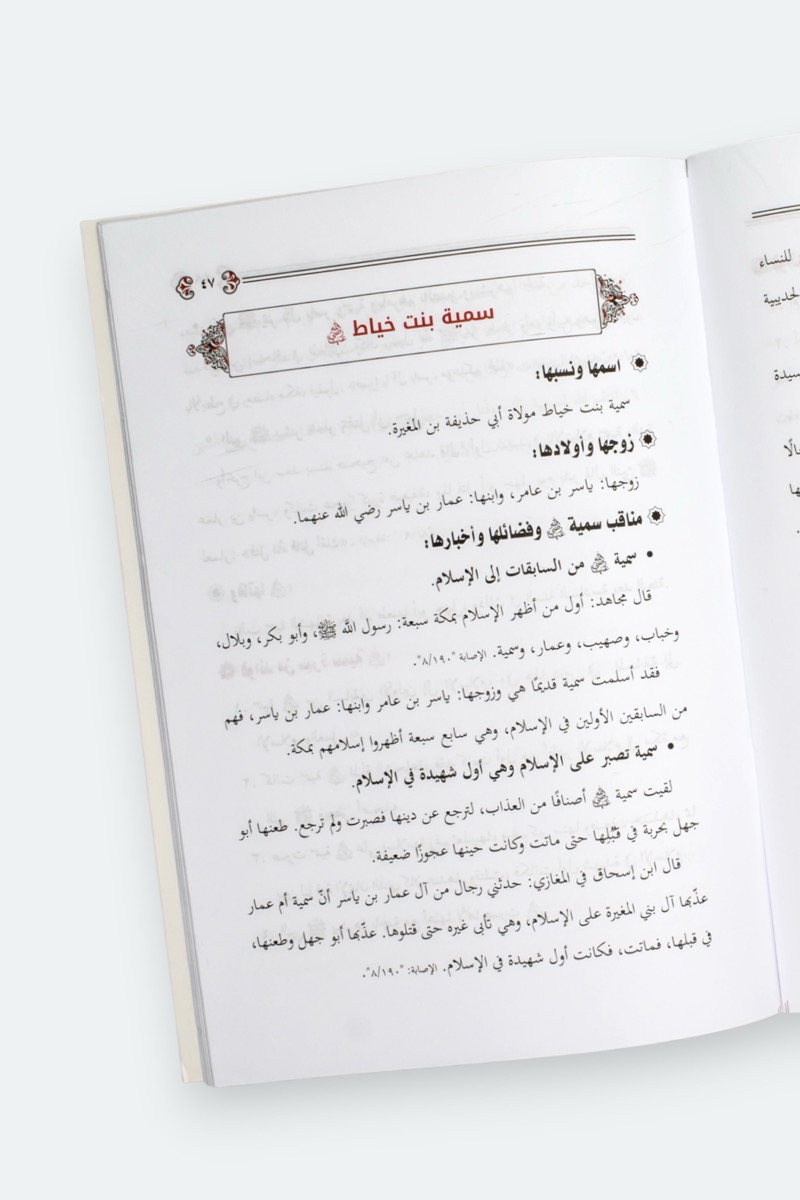 ٤٧
سمية بنت خياط رضي الله عنها
اسمها ونسبها:
سمية بنت خياط مولاة أبي حذيفة بن المغيرة.
زوجها وأولادها:
زوجها: ياسر بن عامر، وابنها: عمار بن ياسر رضي الله عنهما.
مناقب سمية رضي الله عنها وفضائلها وأخبارها:
• سمية رضي الله عنها من السابقات إلى الإسلام.
قال مجاهد: أول من أظهر الإسلام بمكة سبعة: رسول الله ﷺ، وأبو بكر، وبلال،
وخباب، وصهيب، وعمار، وسمية. الإصابة "٨/١٩٠".
فقد أسلمت سمية قديمًا هي وزوجها: ياسر بن عامر وابنها: عمار بن ياسر، فهم
من السابقين الأولين في الإسلام، وهي سابع سبعة أظهروا إسلامهم بمكة.
• سمية تصبر على الإسلام وهي أول شهيدة في الإسلام.
لقيت سمية رضي الله عنها أصنافًا من العذاب، لترجع عن دينها فصبرت ولم ترجع. طعنها أبو
جهل بحربة في قُبُلِها حتى ماتت وكانت حينها عجوزًا ضعيفة.
قال ابن إسحاق في المغازي: حدثني رجال من آل عمار بن ياسر أنّ سمية أم عمار
عذّبها آل بني المغيرة على الإسلام، وهي تأبى غيره حتى قتلوها. عذّبها أبو جهل وطعنها،
في قبلها، فماتت، فكانت أول شهيدة في الإسلام. الإصابة: "٨/١٩٠".
للنساء